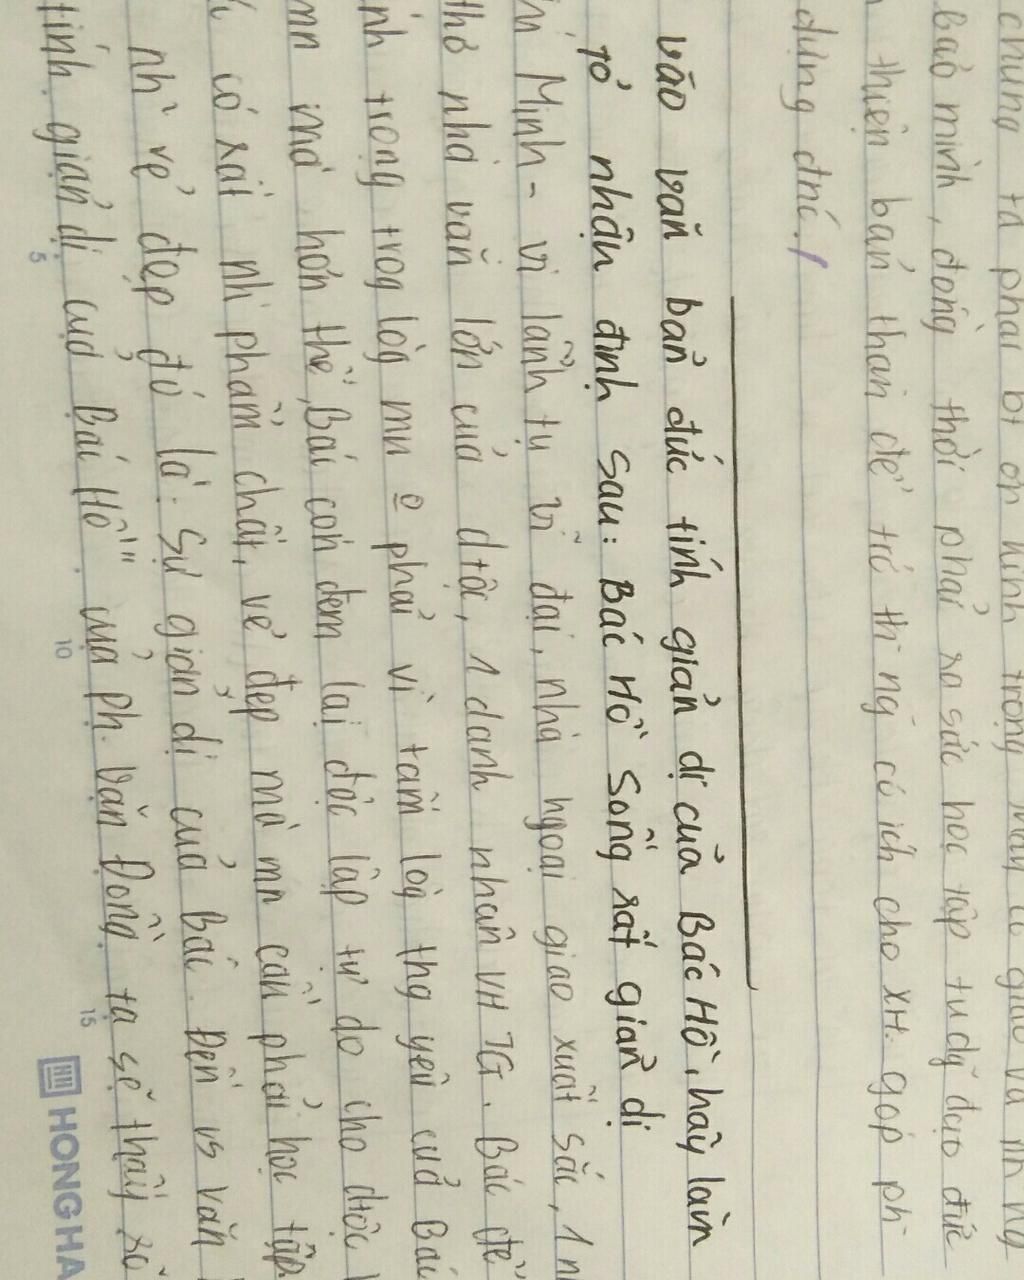 chúng ta phải bt ơn kính trọng thầy cô giáo và nh ng
bảo mình, đồng thời phải ra sức học tập tu dg đạo đức
thiện bản thân để trở th ng có ích cho XH. góp ph
dựng đnc.
vào văn bản đức tính giản dị của Bác Hồ, hãy làm
rỏ nhận định sau: Bác Hồ Sống rất giản dị
Minh - vị lãnh tụ vĩ đại, nhà ngoại giao xuất sắc, 1 n
thơ nhà văn lớn của dtộc, 1 danh nhân VH TG. Bác để
trọng trog lòg mn o phải vì tấm lòg thg yêu của Bác
mn mà hơn thế, Bác còn đem lại độc lập tự do cho dtộc
có rất nh phẩm chất, vẻ đẹp mà mn cần phải học tập
nh vẻ đẹp đó là sự giản dị của Bác. Đến vs văn
tính giản dị của Bác Hồ" của Ph. Văn Đồng ta sẽ thấy rõ
5 10 15
HONG HA